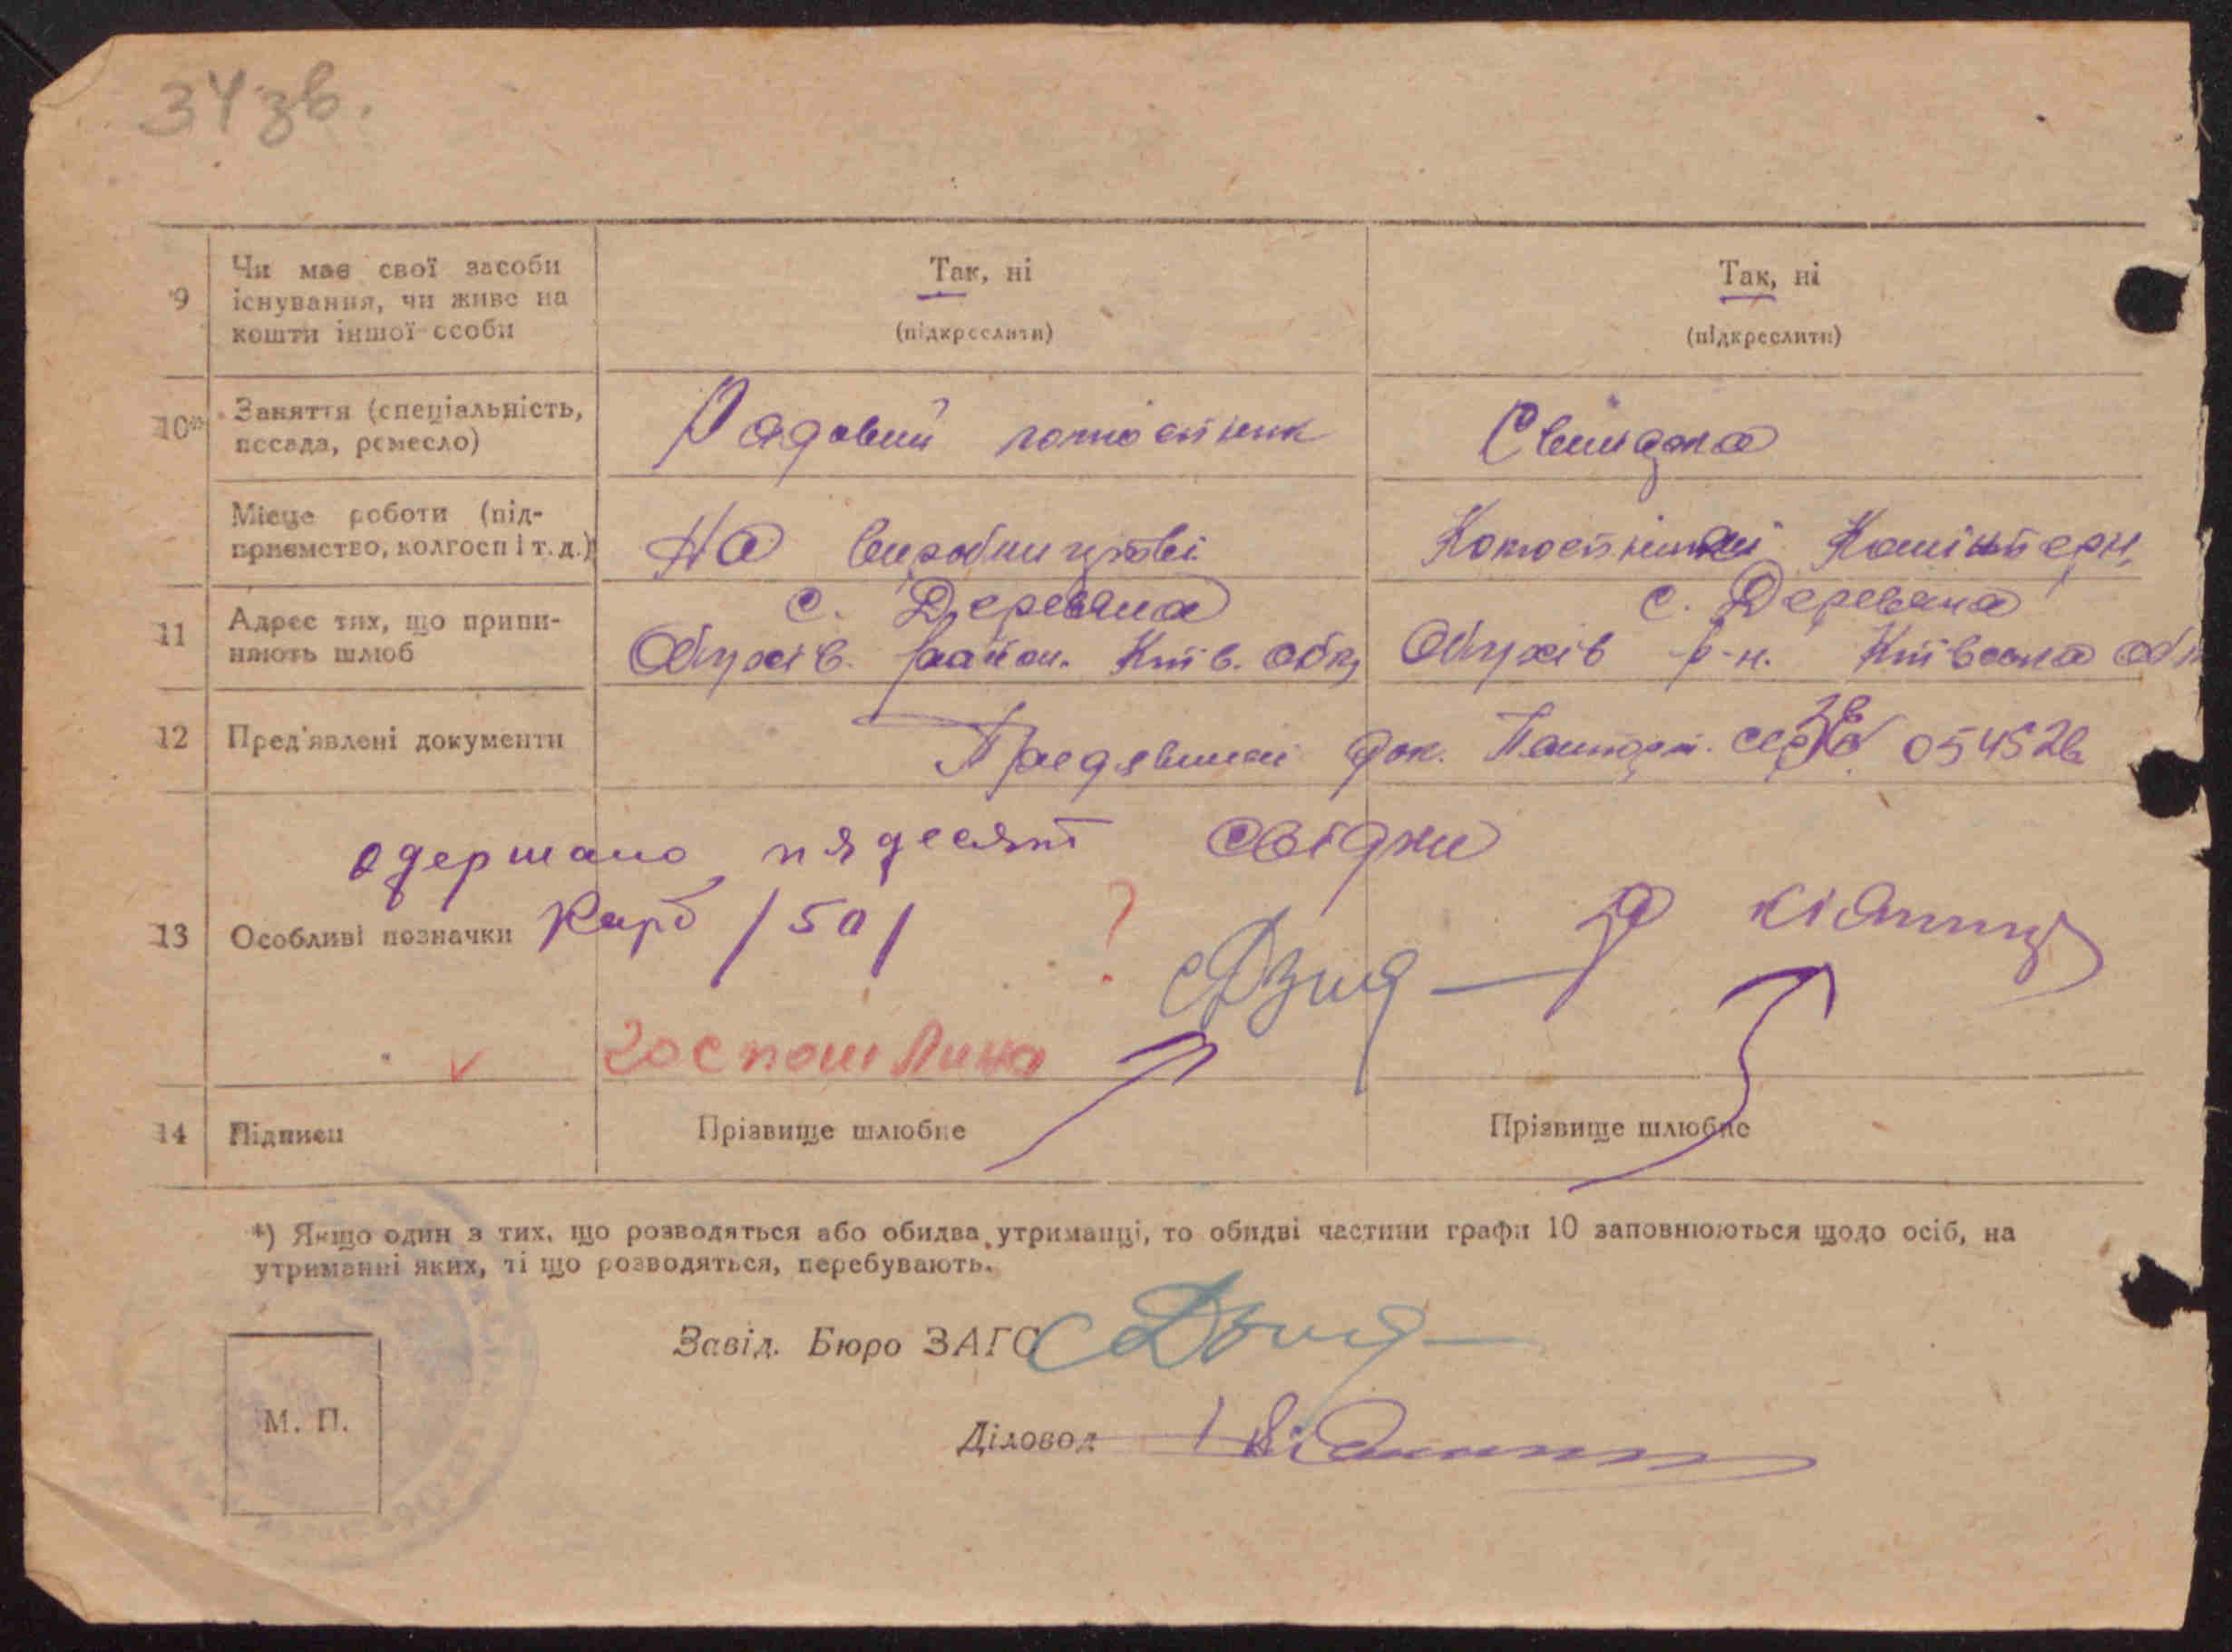 34 зв.
9
Чи має свої засоби
існування, чи живе на
кошти іншої особи
Так, ні
(підкреслити)
Так, ні
(підкреслити)
10*
Заняття (спеціальність,
посада, ремесло)
Рядовий
Свинарка
Місце роботи (під-
приємство, колгосп і т. д.)
На виробництві
Комінтерн,
11
Адрес тих, що припи-
няють шлюб
с. Деревяна
Обухів. район. Київ. обл,
с. Деревяна
Обухів р-н. Київська обл
12
Пред'явлені документи
док. Пашпорт. сер 054526
13
Особливі позначки
одержано пядесят
Карб /50/
свідки
?
Дзид
госпошлина
14
Підписи
Прізвище шлюбне
Прізвище шлюбне
*) Якщо один з тих, що розводяться або обидва утриманці, то обидві частини графи 10 заповнюються щодо осіб, на
утриманні яких, ті що розводяться, перебувають.
Завід. Бюро ЗАГС
Діловод
М. П.